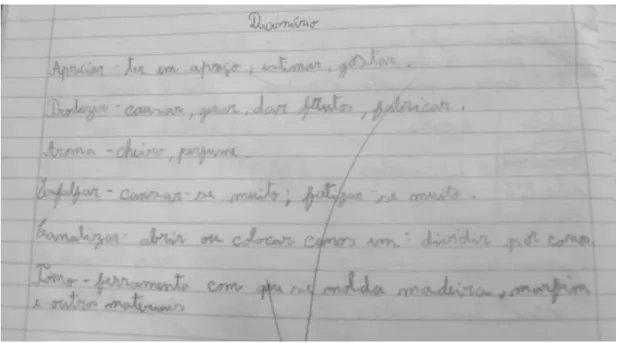 Dicionário
Apreciar - ter em apreço, estimar, gostar.
Produzir - causar, gerar, dar frutos, fabricar.
Aroma - cheiro, perfume.
Esfalfar - cansar-se muito; fatigar-se muito.
Canalizar - abrir ou colocar canos em; dividir por canos.
Torno - ferramenta com que se molda madeira, marfim
e outro materiais